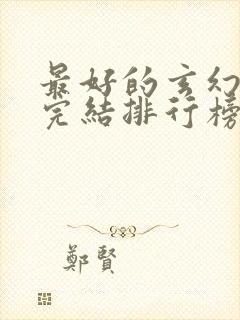 最好的玄幻
完結排行榜
鄭賢